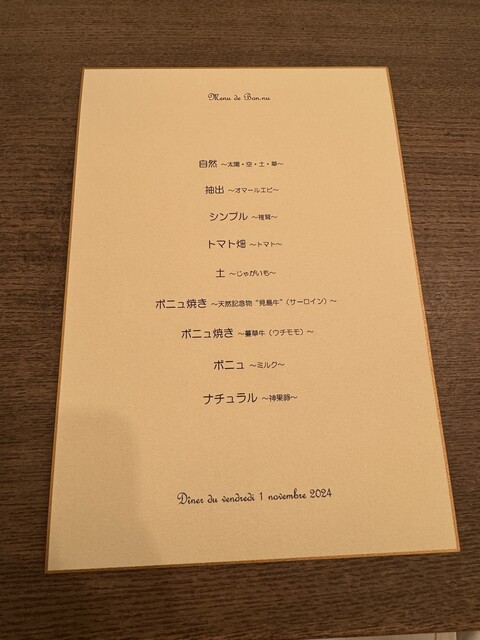 Menu de Bon.nu
自然 ～太陽・空・土・草～
抽出 ～オマールエビ～
シンプル ～椎茸～
トマト畑 ～トマト～
土 ～じゃがいも～
ボニュ焼き ～天然記念物 "見島牛"（サーロイン）～
ボニュ焼き ～蔓草牛（ウチモモ）～
ボニュ ～ミルク～
ナチュラル ～神果豚～
Dîner du vendredi 1 novembre 2024